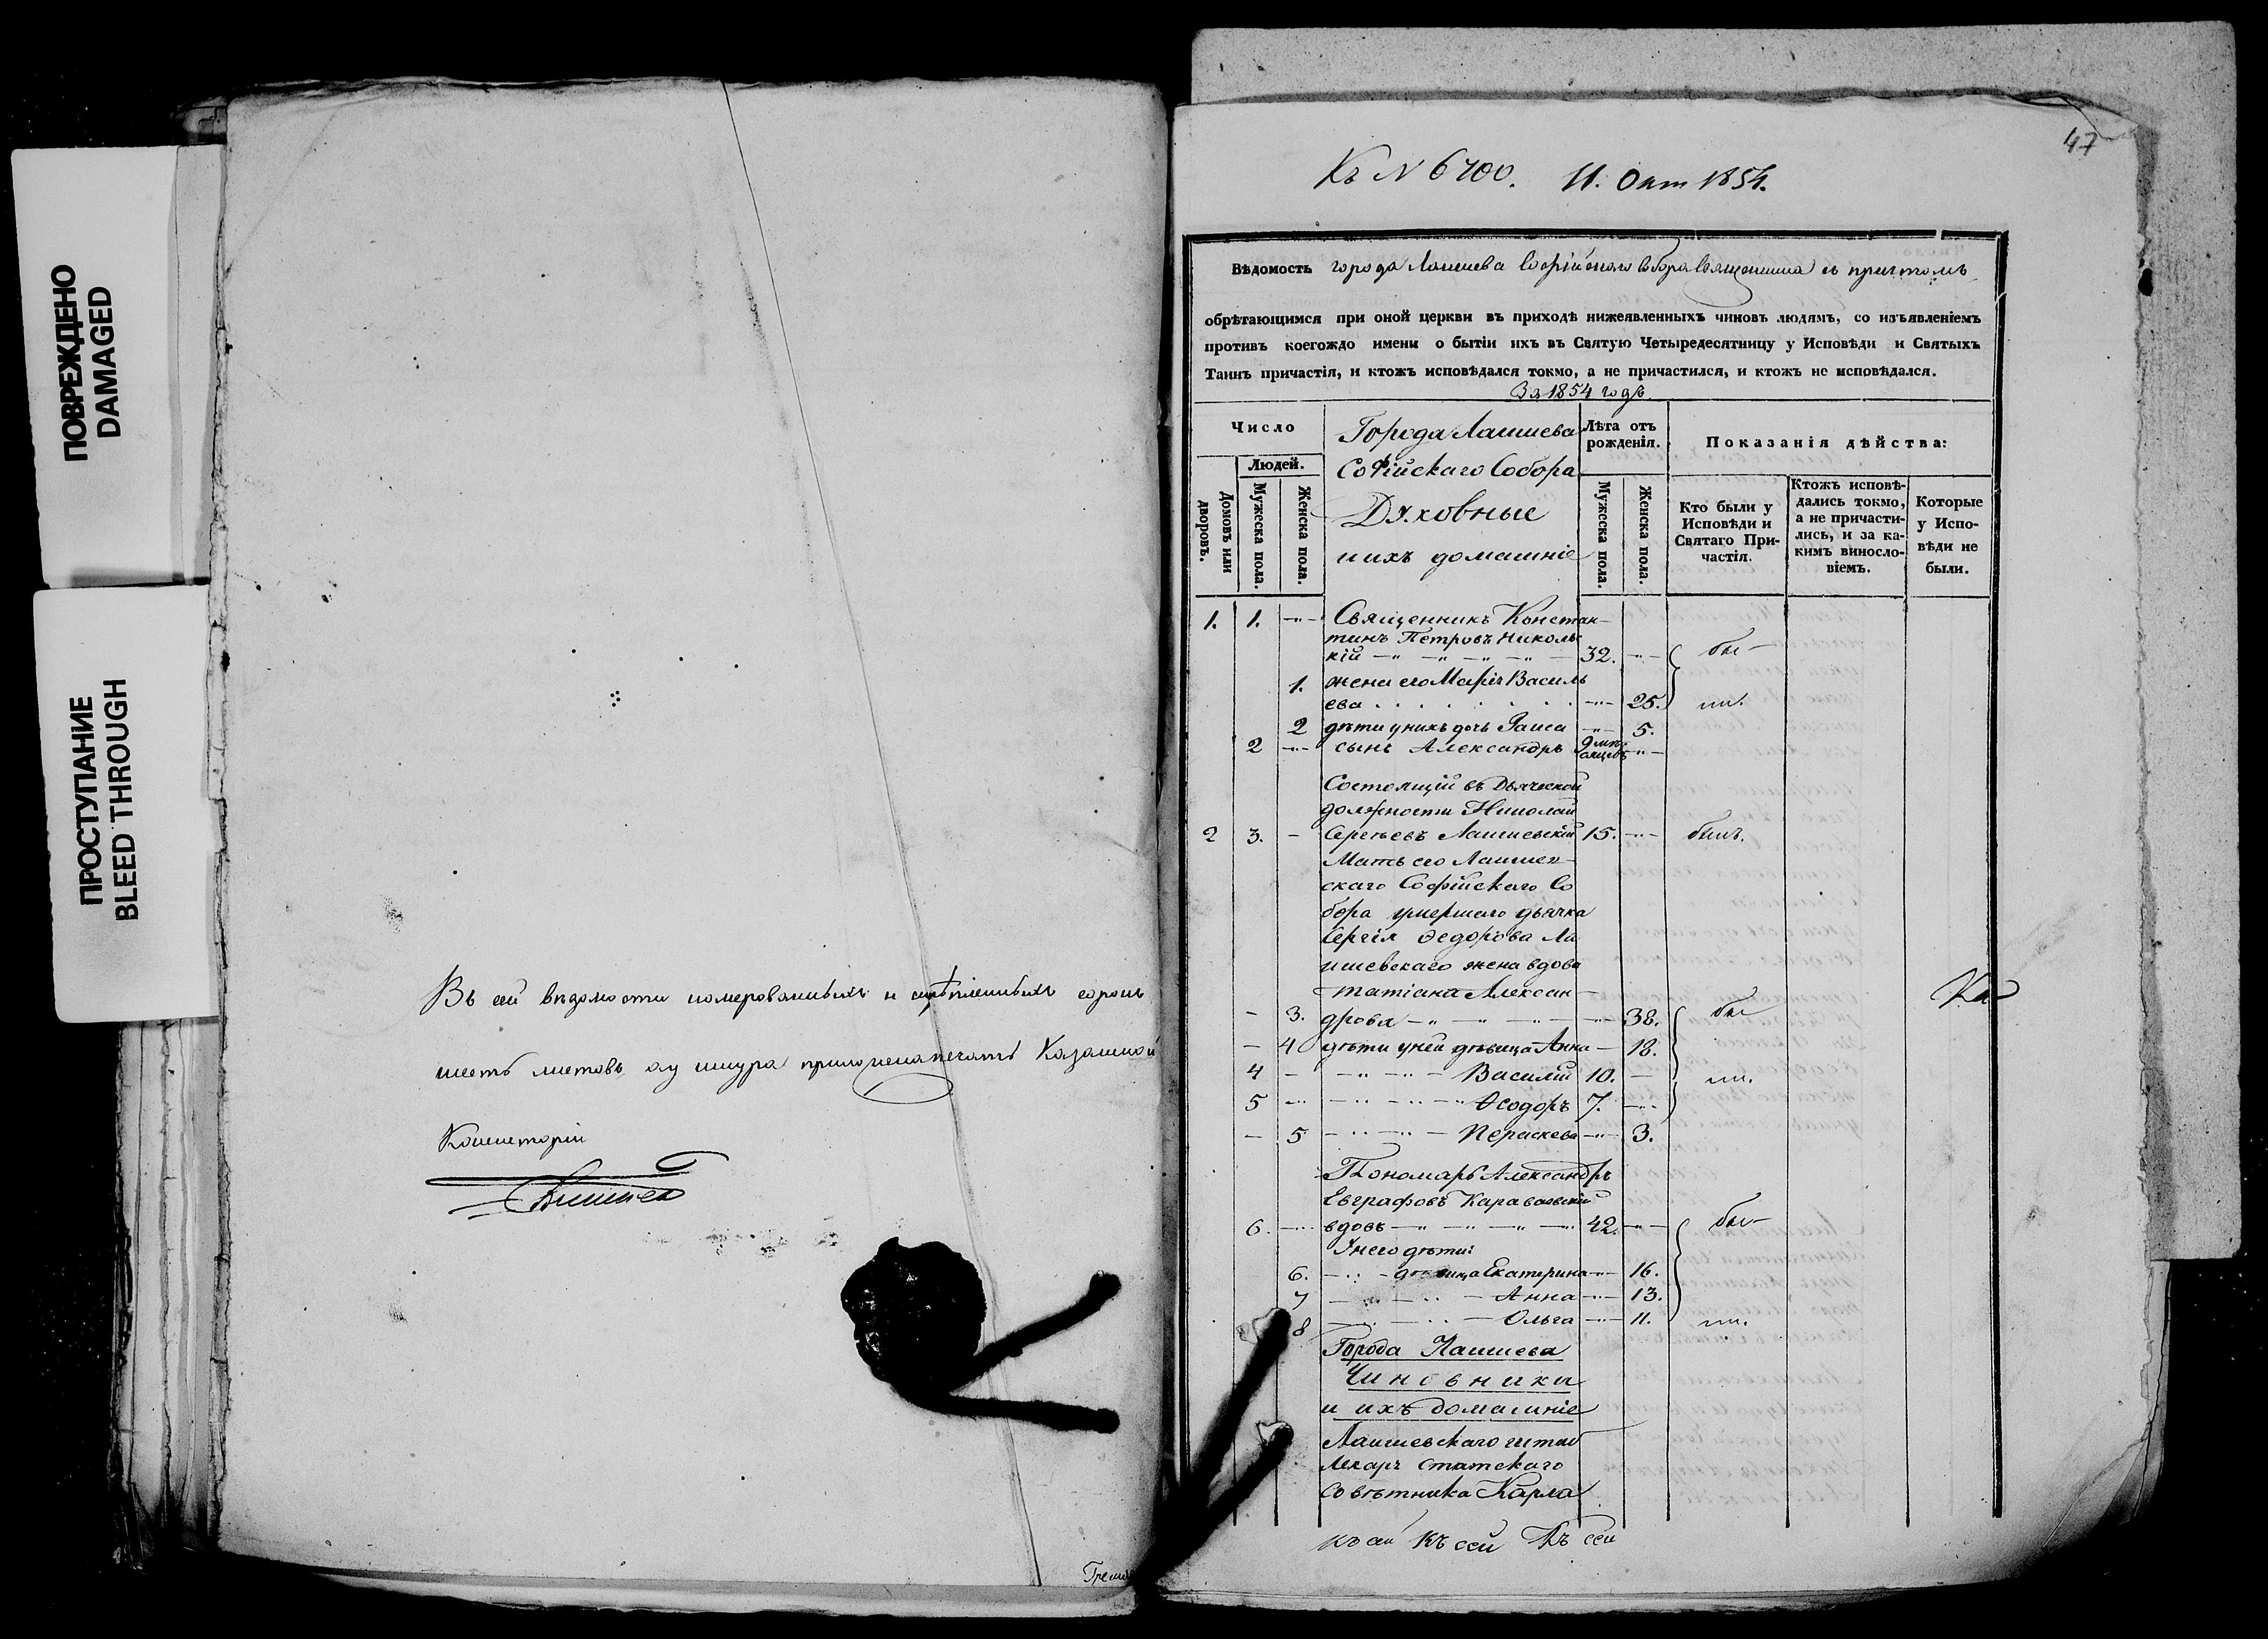 ПОВРЕЖДЕНО
DAMAGED
ПРОСТУПАНИЕ
BLEED THROUGH
Въ сей вѣдомости номерованныхъ и скрѣпленныхъ сорокъ
шесть листовъ, а у шнура приложена печать Казанской
Консисторіи
47
Къ N 6700. 11. Окт 1854.
Вѣдомость города Лаишева Софійскаго Собора священника съ причтомъ
обрѣтающимся при оной церкви въ приходѣ нижеявленныхъ чиновъ людямъ, со изъявленіемъ
противъ коегождо имени о бытіи ихъ въ Святую Четыредесятницу у Исповѣди и Святыхъ
Таинъ причастія, и ктожъ исповѣдался токмо, а не причастился, и ктожъ не исповѣдался.
За 1854 годъ
Число
Людей.
Домовъ или дворовъ.
Мужеска пола.
Женска пола.
Города Лаишева
Софійскаго Собора
Духовные
и ихъ домашніе
Лѣта отъ
рожденія.
Мужеска пола.
Женска пола.
Показанія дѣйства:
Кто были у
Исповѣди и
Святаго При-
частія.
Ктожъ исповѣ-
дались токмо,
а не причасти-
лись, и за ка-
кимъ винословіемъ.
Которые
у Испо-
вѣди не
были.
1. 1. -"- Священникъ Констан-
тинъ Петровъ Николь
кій -"- -"- -"- -"- 32. -"- бы-
1. жена его Марія Василь
ева . . . . . . . -"- 25. ли.
2 дѣти у нихъ дочь Раиса -"- 5.
2 -"- сынъ Александръ 9 мѣ-
сяцевъ -"-
Состоящій въ Дьяческой
должности Николай
2 3. - Сергѣевъ Лаишевскій 15. -"- былъ.
Мать его Лаишев-
скаго Софійскаго Со
бора умершаго дьячка
Сергія Ѳедорова Ла
ишевскаго жена вдова
Татіана Алексан-
- 3. дрова -"- -"- -"- -"- 38. бы
- 4 дѣти у ней дѣвица Анна - 18.
4 - -"- -"- - Василій 10. - ли.
5 -"- -"- -"- Ѳеодоръ 7. -"-
- 5 -"- -"- - Параскева -"- 3.
Пономарь Александръ
Евграфовъ Караваевскій
6. -"- вдовъ -"- -"- -"- -"- 42. -"- бы-
У него дѣти:
6. -"- - дѣвица Екатерина -"- 16.
7 -"- -"- - Анна -"- 13.
8 -"- -"- - Ольга -"- 11. ли.
Города Лаишева
Чиновники
и ихъ домашніе
Лаишевскаго штаб
лекаря статскаго
совѣтника Карла
къ сей къ сей Къ сей